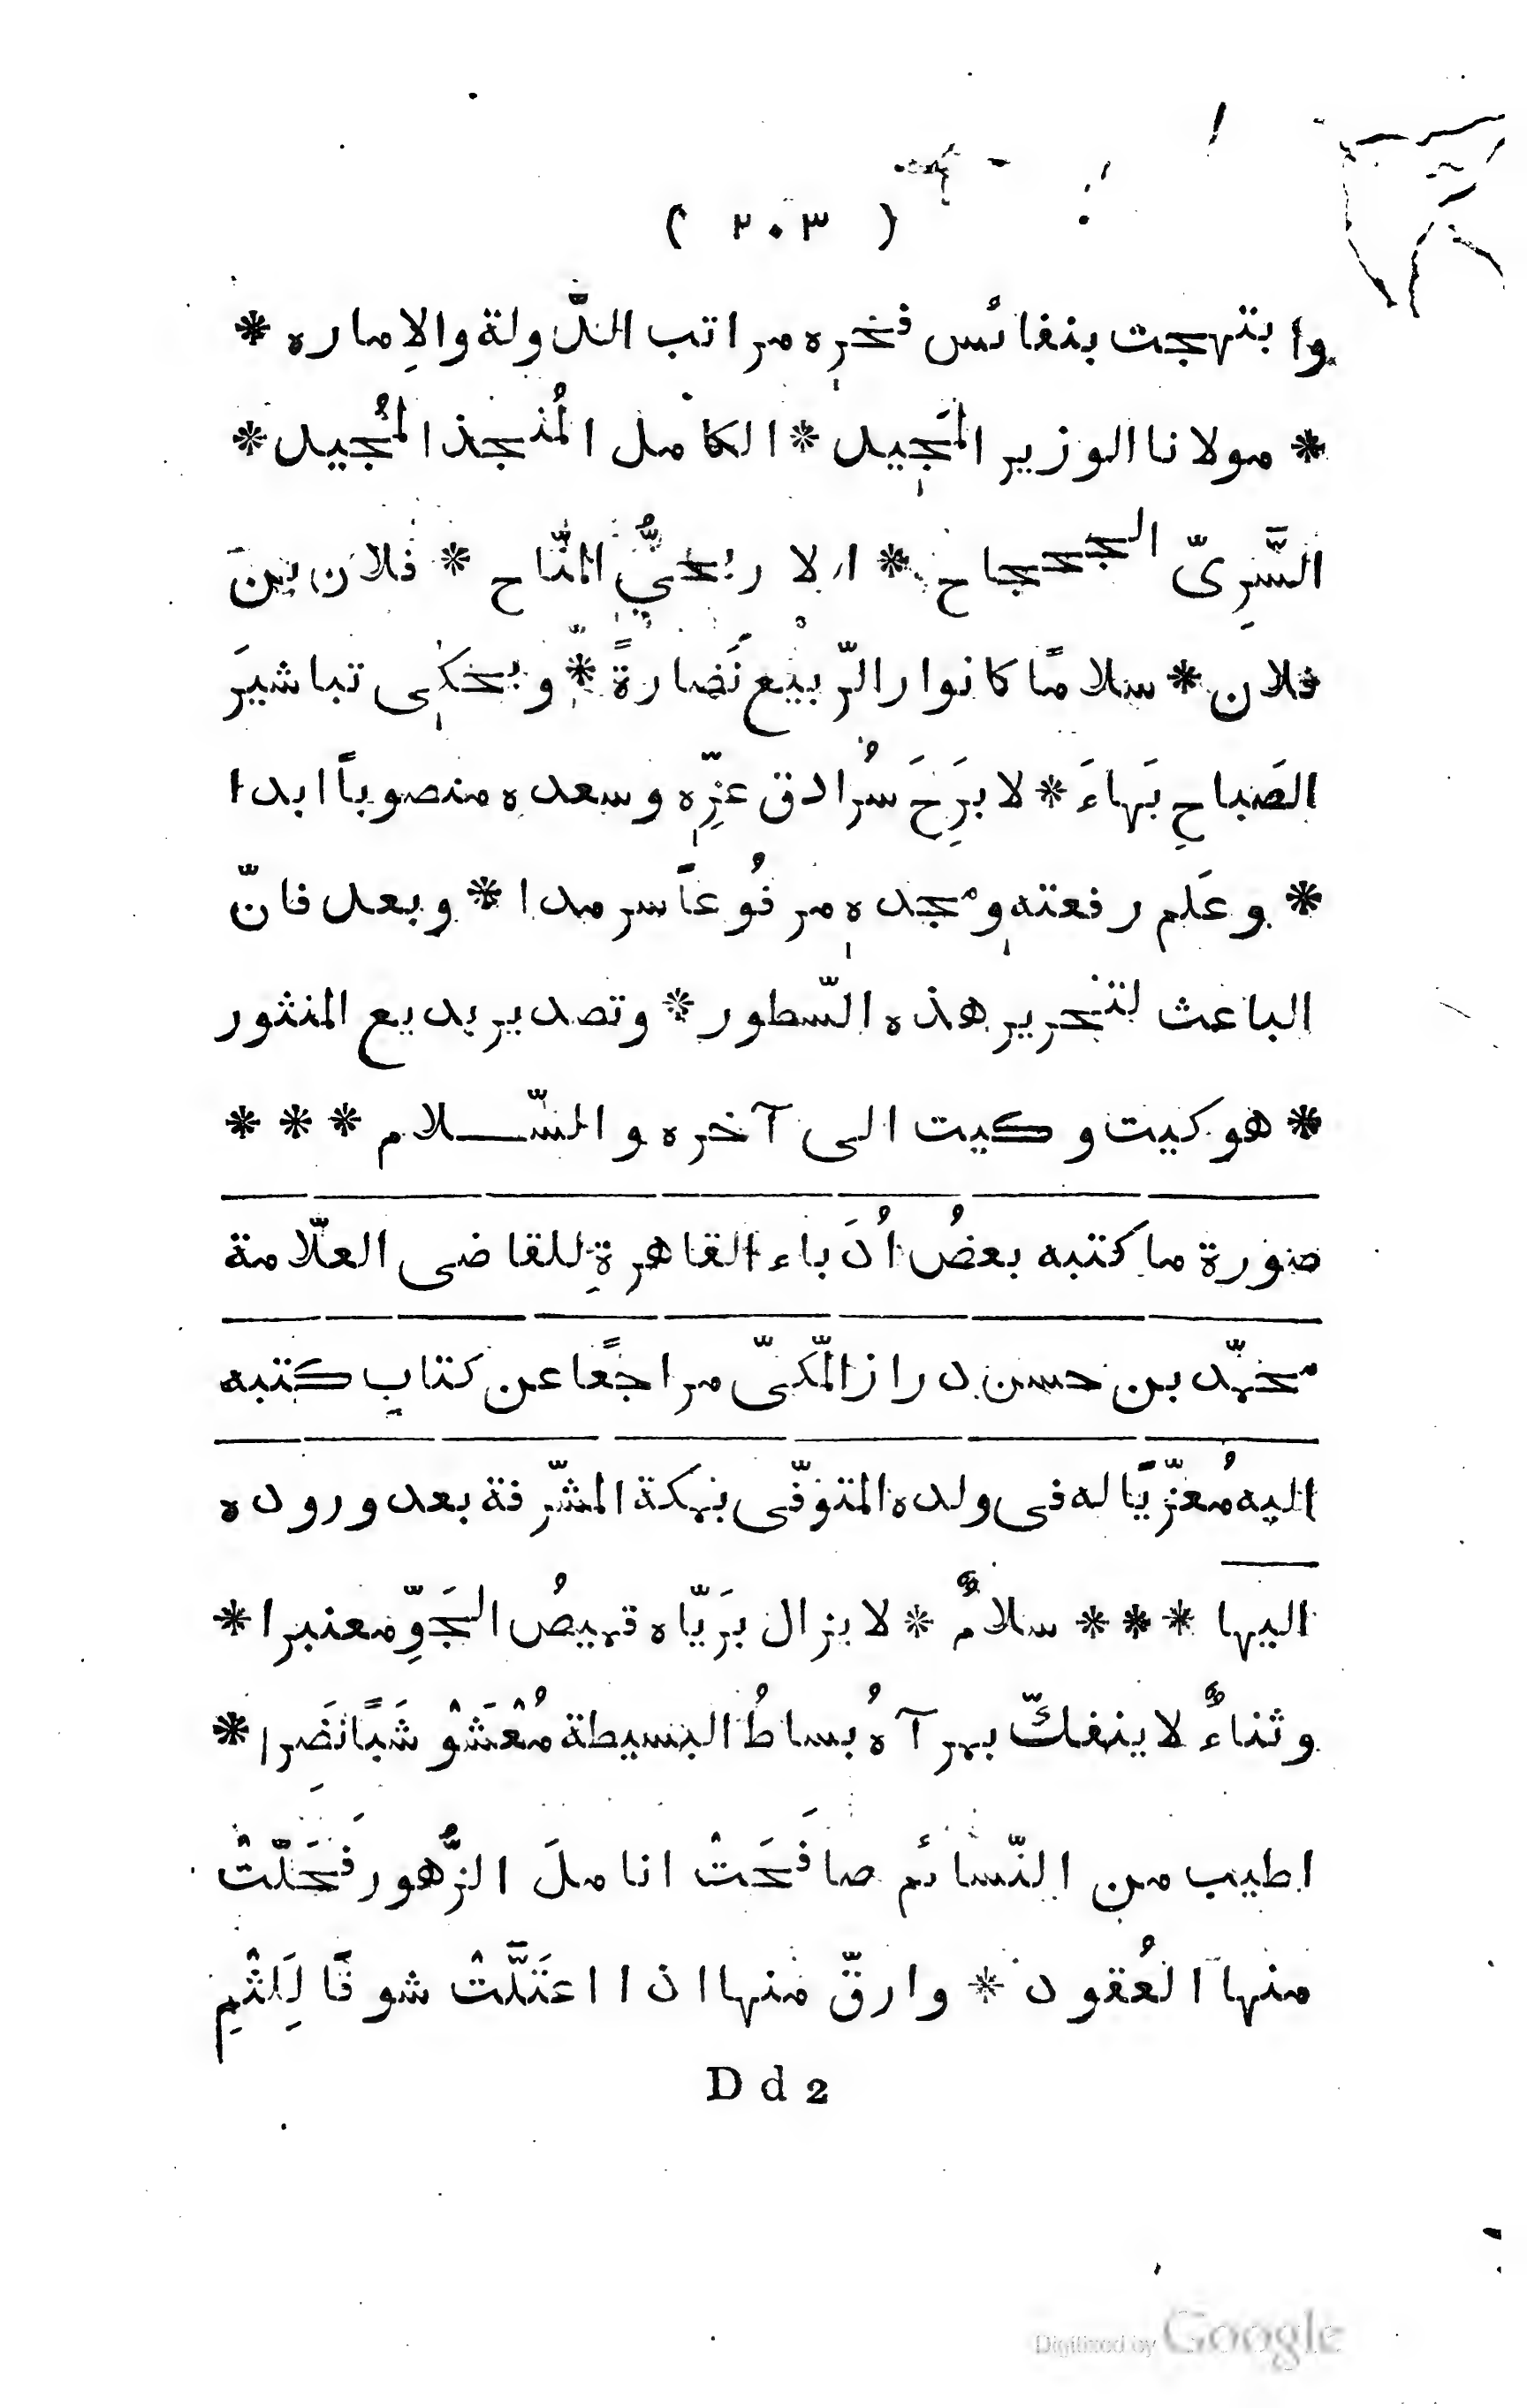 ( ٢٠٣ )
وابتهجت بنفائس فخرِه مراتب الدّولة والاِماره *
* مولانا الوزير المَجِيد * الكامل المُنجذ المُجيد *
السَّرِىّ الجحجاح * الاريحيُّ المنّاح * فلان بنَ
فلان * سلامًا كانوار الرّبيْع نَضارةً * ويحكى تباشيرَ
الصَباحِ بَهاءَ * لا بَرِحَ سُرادق عزِّهِ وسعده منصوباً ابدا
* وعَلم رفعتهِ ومجدهِ مرفُوعاً سرمدا * وبعد فانّ
الباعث لتحرير هذه السّطور * وتصدير بديع المنثور
* هو كيت وكيت الى آخره والسّلام * * *
صورة ما كتبه بعضُ اُدَباء القاهرةِ للقاضى العلّامة
محمّد بن حسن دراز المكّىّ مراجعًا عن كتابٍ كتبه
اليه مُعزّيًا له فى ولده المتوفّى بمكة المشرّفة بعد وروده
اليها * * * سلامٌ * لا يزال بَريّاه قميصُ الجَوِّ معنبرا *
وثناءٌ لا ينفكّ بمرآهُ بساطُ البسيطة مُعْشَوْشَبًا نَضِرا *
اطيب من النّسائم صافَحَتْ اناملَ الزُّهور فَحَلّتْ
منها العُقود * وارقّ منها اذا اعتَلَّتْ شوقًا لِلَثْمِ
D d 2
Digitized by Google